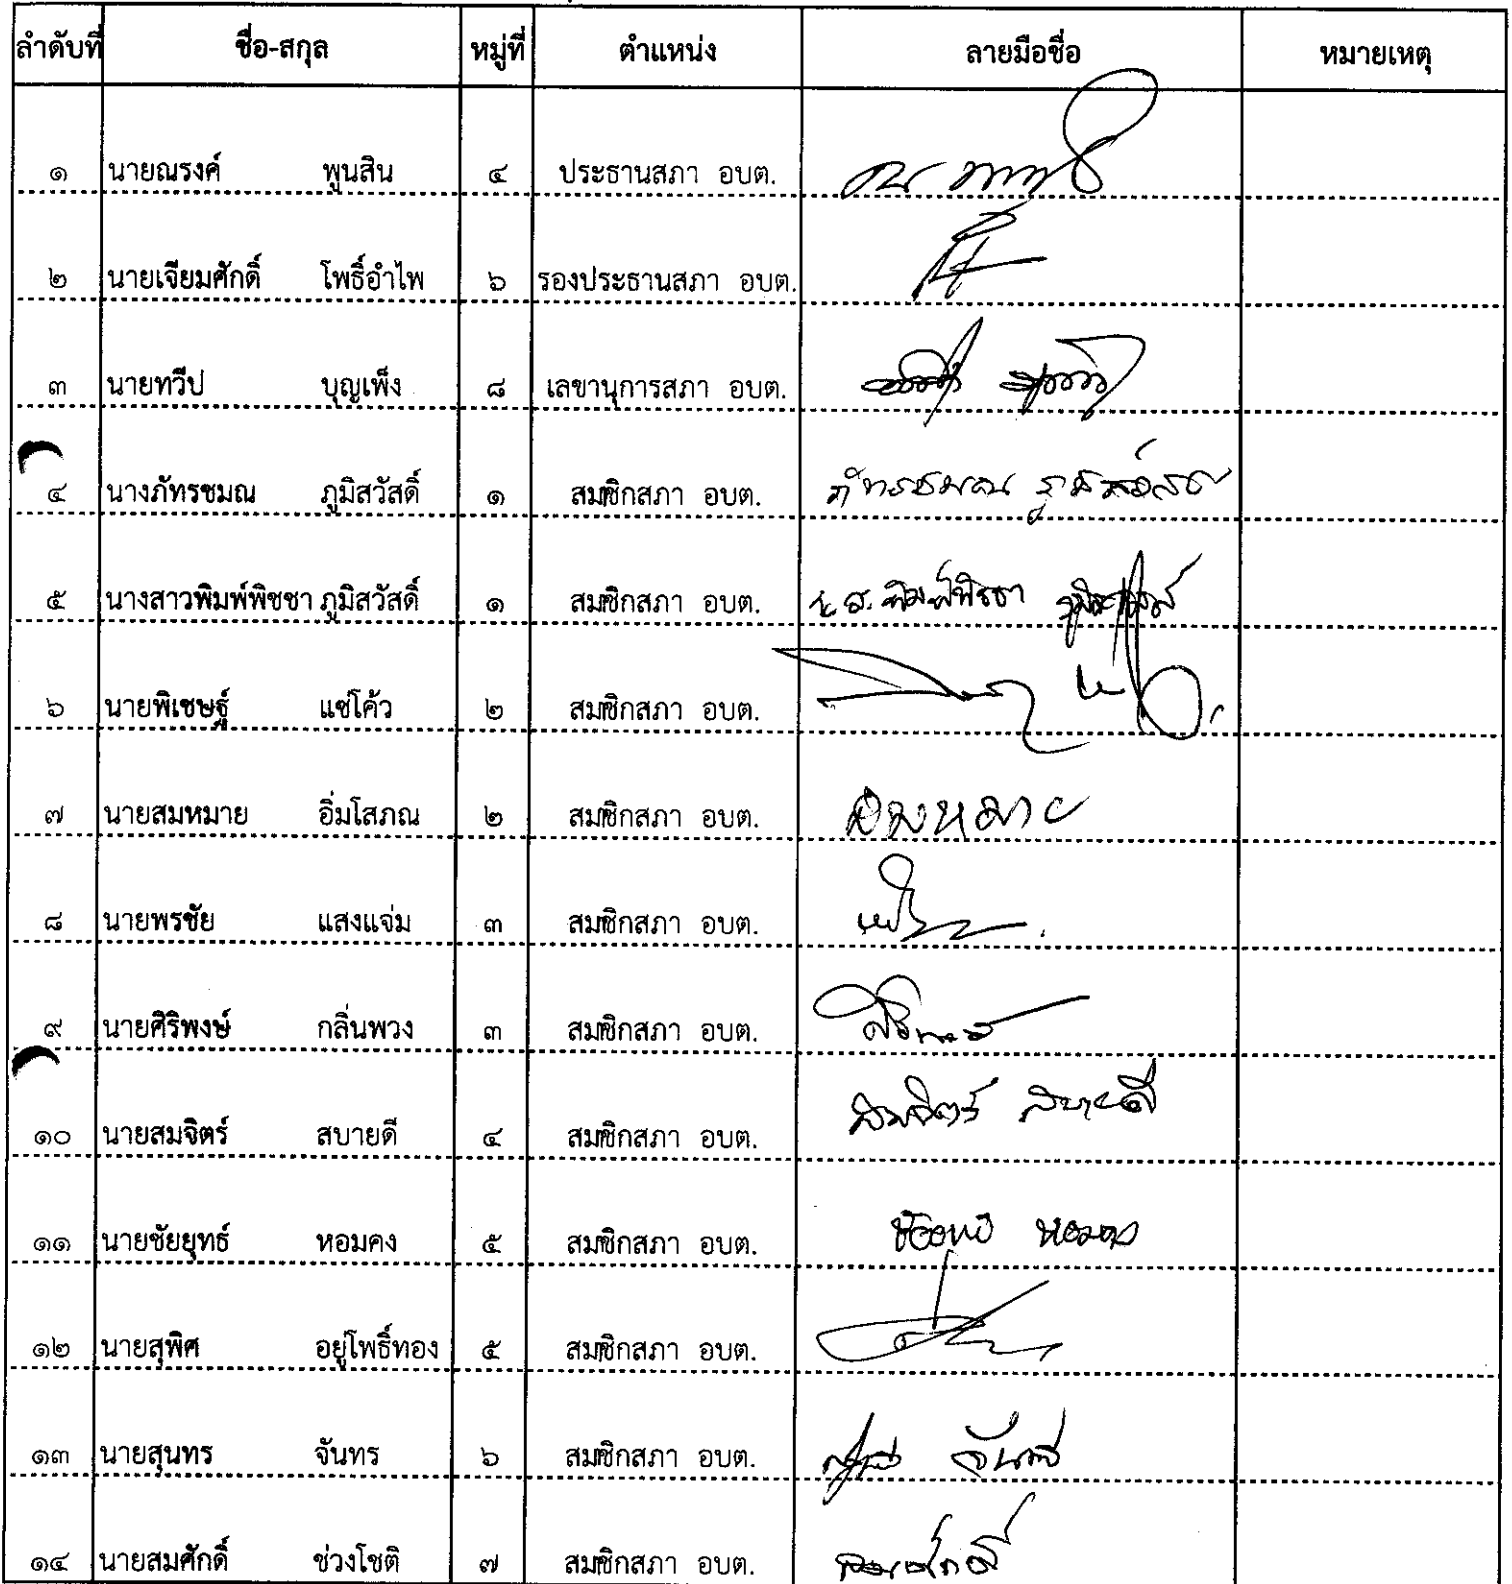 ลำดับที่ ชื่อ-สกุล หมู่ที่ ตำแหน่ง ลายมือชื่อ หมายเหตุ
๑ นายณรงค์ พูนสิน ๔ ประธานสภา อบต.
๒ นายเจียมศักดิ์ โพธิ์อำไพ ๖ รองประธานสภา อบต.
๓ นายทวีป บุญเพ็ง ๘ เลขานุการสภา อบต.
๔ นางภัทรชมณ ภูมิสวัสดิ์ ๑ สมชิกสภา อบต. ภัทรชมณ ภูมิสวัสดิ์
๕ นางสาวพิมพ์พิชชา ภูมิสวัสดิ์ ๑ สมชิกสภา อบต. น.ส. พิมพ์พิชชา ภูมิสวัสดิ์
๖ นายพิเชษฐ์ แซ่โค้ว ๒ สมชิกสภา อบต.
๗ นายสมหมาย อิ่มโสภณ ๒ สมชิกสภา อบต. สมหมาย
๘ นายพรชัย แสงแจ่ม ๓ สมชิกสภา อบต.
๙ นายศิริพงษ์ กลิ่นพวง ๓ สมชิกสภา อบต.
๑๐ นายสมจิตร์ สบายดี ๔ สมชิกสภา อบต. สมจิตร์ สบายดี
๑๑ นายชัยยุทธ์ หอมคง ๕ สมชิกสภา อบต. หอมคง
๑๒ นายสุพิศ อยู่โพธิ์ทอง ๕ สมชิกสภา อบต.
๑๓ นายสุนทร จันทร ๖ สมชิกสภา อบต.
๑๔ นายสมศักดิ์ ช่วงโชติ ๗ สมชิกสภา อบต. สมศักดิ์